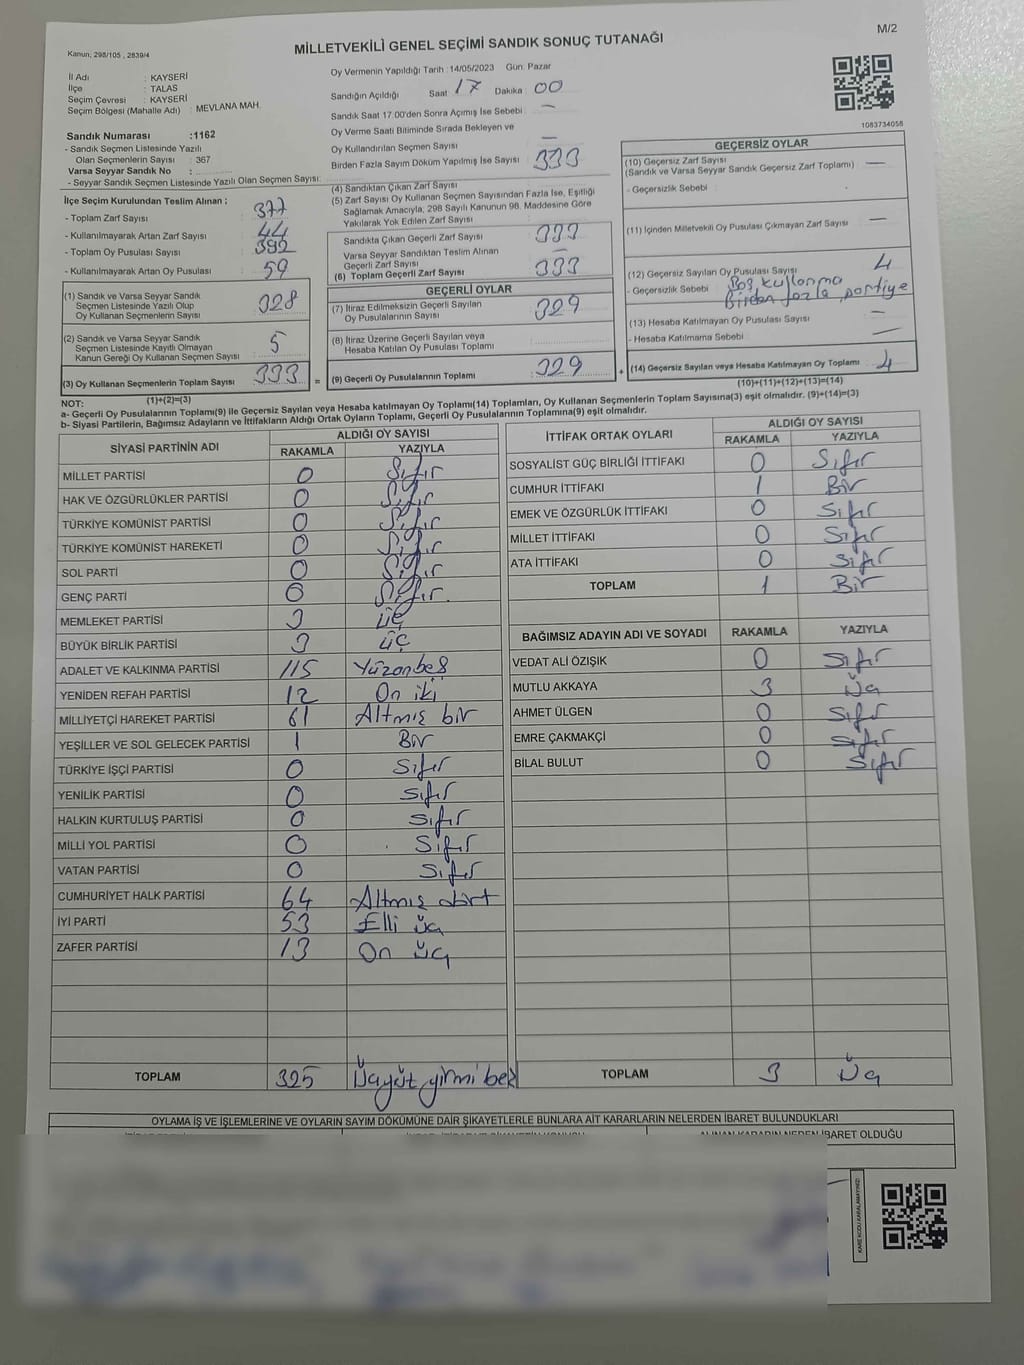 M/2
MİLLETVEKİLİ GENEL SEÇİMİ SANDIK SONUÇ TUTANAĞI
Kanun; 298/105 , 2839/4
İl Adı : KAYSERİ
İlçe : TALAS
Seçim Çevresi : KAYSERİ
Seçim Bölgesi (Mahalle Adı) : MEVLANA MAH.
Sandık Numarası :1162
- Sandık Seçmen Listesinde Yazılı
Olan Seçmenlerin Sayısı : 367
Varsa Seyyar Sandık No :
- Seyyar Sandık Seçmen Listesinde Yazılı Olan Seçmen Sayısı:
Oy Vermenin Yapıldığı Tarih :14/05/2023 Gün: Pazar
Sandığın Açıldığı Saat 17 Dakika 00
Sandık Saat 17.00'den Sonra Açımış İse Sebebi : —
Oy Verme Saati Bitiminde Sırada Bekleyen ve
Oy Kullandırılan Seçmen Sayısı : —
Birden Fazla Sayım Döküm Yapılmış İse Sayısı : 333
1083734058
İlçe Seçim Kurulundan Teslim Alınan ;
- Toplam Zarf Sayısı : 377
- Kullanılmayarak Artan Zarf Sayısı : 44
- Toplam Oy Pusulası Sayısı : 392
- Kullanılmayarak Artan Oy Pusulası : 59
(1) Sandık ve Varsa Seyyar Sandık
Seçmen Listesinde Yazılı Olup
Oy Kullanan Seçmenlerin Sayısı : 328
(2) Sandık ve Varsa Seyyar Sandık
Seçmen Listesinde Kayıtlı Olmayan
Kanun Gereği Oy Kullanan Seçmen Sayısı : 5
(3) Oy Kullanan Seçmenlerin Toplam Sayısı : 333
(1)+(2)=(3)
(4) Sandıktan Çıkan Zarf Sayısı :
(5) Zarf Sayısı Oy Kullanan Seçmen Sayısından Fazla İse, Eşitliği
Sağlamak Amacıyla, 298 Sayılı Kanunun 98. Maddesine Göre
Yakılarak Yok Edilen Zarf Sayısı :
Sandıkta Çıkan Geçerli Zarf Sayısı : 333
Varsa Seyyar Sandıktan Teslim Alınan
Geçerli Zarf Sayısı : —
(6) Toplam Geçerli Zarf Sayısı : 333
GEÇERLİ OYLAR
(7) İtiraz Edilmeksizin Geçerli Sayılan
Oy Pusulalarının Sayısı : 329
(8) İtiraz Üzerine Geçerli Sayılan veya
Hesaba Katılan Oy Pusulası Toplamı :
= (9) Geçerli Oy Pusulalarının Toplamı : 329
GEÇERSİZ OYLAR
(10) Geçersiz Zarf Sayısı : —
(Sandık ve Varsa Seyyar Sandık Geçersiz Zarf Toplamı)
- Geçersizlik Sebebi :
(11) İçinden Milletvekili Oy Pusulası Çıkmayan Zarf Sayısı : —
(12) Geçersiz Sayılan Oy Pusulası Sayısı : 4
- Geçersizlik Sebebi : Boş kullanma
Birden fazla partiye
(13) Hesaba Katılmayan Oy Pusulası Sayısı : —
- Hesaba Katılmama Sebebi : —
+ (14) Geçersiz Sayılan veya Hesaba Katılmayan Oy Toplamı : 4
(10)+(11)+(12)+(13)=(14)
NOT:
a- Geçerli Oy Pusulalarının Toplamı(9) ile Geçersiz Sayılan veya Hesaba katılmayan Oy Toplamı(14) Toplamları, Oy Kullanan Seçmenlerin Toplam Sayısına(3) eşit olmalıdır. (9)+(14)=(3)
b- Siyasi Partilerin, Bağımsız Adayların ve İttifakların Aldığı Ortak Oyların Toplamı, Geçerli Oy Pusulalarının Toplamına(9) eşit olmalıdır.
SİYASİ PARTİNİN ADI ALDIĞI OY SAYISI
RAKAMLA YAZIYLA
MİLLET PARTİSİ 0 Sıfır
HAK VE ÖZGÜRLÜKLER PARTİSİ 0 Sıfır
TÜRKİYE KOMÜNİST PARTİSİ 0 Sıfır
TÜRKİYE KOMÜNİST HAREKETİ 0 Sıfır
SOL PARTİ 0 Sıfır
GENÇ PARTİ 0 Sıfır
MEMLEKET PARTİSİ 3 üç
BÜYÜK BİRLİK PARTİSİ 3 üç
ADALET VE KALKINMA PARTİSİ 115 Yüzonbeş
YENİDEN REFAH PARTİSİ 12 On iki
MİLLİYETÇİ HAREKET PARTİSİ 61 Altmış bir
YEŞİLLER VE SOL GELECEK PARTİSİ 1 Bir
TÜRKİYE İŞÇİ PARTİSİ 0 Sıfır
YENİLİK PARTİSİ 0 Sıfır
HALKIN KURTULUŞ PARTİSİ 0 Sıfır
MİLLİ YOL PARTİSİ 0 Sıfır
VATAN PARTİSİ 0 Sıfır
CUMHURİYET HALK PARTİSİ 64 Altmış dört
İYİ PARTİ 53 Elli üç
ZAFER PARTİSİ 13 On üç
TOPLAM 325 Üçyüz yirmi beş
İTTİFAK ORTAK OYLARI ALDIĞI OY SAYISI
RAKAMLA YAZIYLA
SOSYALİST GÜÇ BİRLİĞİ İTTİFAKI 0 Sıfır
CUMHUR İTTİFAKI 1 Bir
EMEK VE ÖZGÜRLÜK İTTİFAKI 0 Sıfır
MİLLET İTTİFAKI 0 Sıfır
ATA İTTİFAKI 0 Sıfır
TOPLAM 1 Bir
BAĞIMSIZ ADAYIN ADI VE SOYADI RAKAMLA YAZIYLA
VEDAT ALİ ÖZIŞIK 0 Sıfır
MUTLU AKKAYA 3 Üç
AHMET ÜLGEN 0 Sıfır
EMRE ÇAKMAKÇİ 0 Sıfır
BİLAL BULUT 0 Sıfır
TOPLAM 3 Üç
OYLAMA İŞ VE İŞLEMLERİNE VE OYLARIN SAYIM DÖKÜMÜNE DAİR ŞİKAYETLERLE BUNLARA AİT KARARLARIN NELERDEN İBARET BULUNDUKLARI
ALINAN KARARIN NEDEN İBARET OLDUĞU
KARE KODU KARALAMAYINIZ!